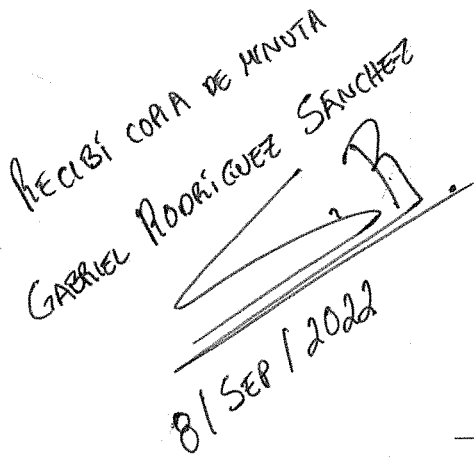 RECIBÍ COPIA DE MINUTA
GABRIEL RODRÍGUEZ SÁNCHEZ
8/SEP/2022